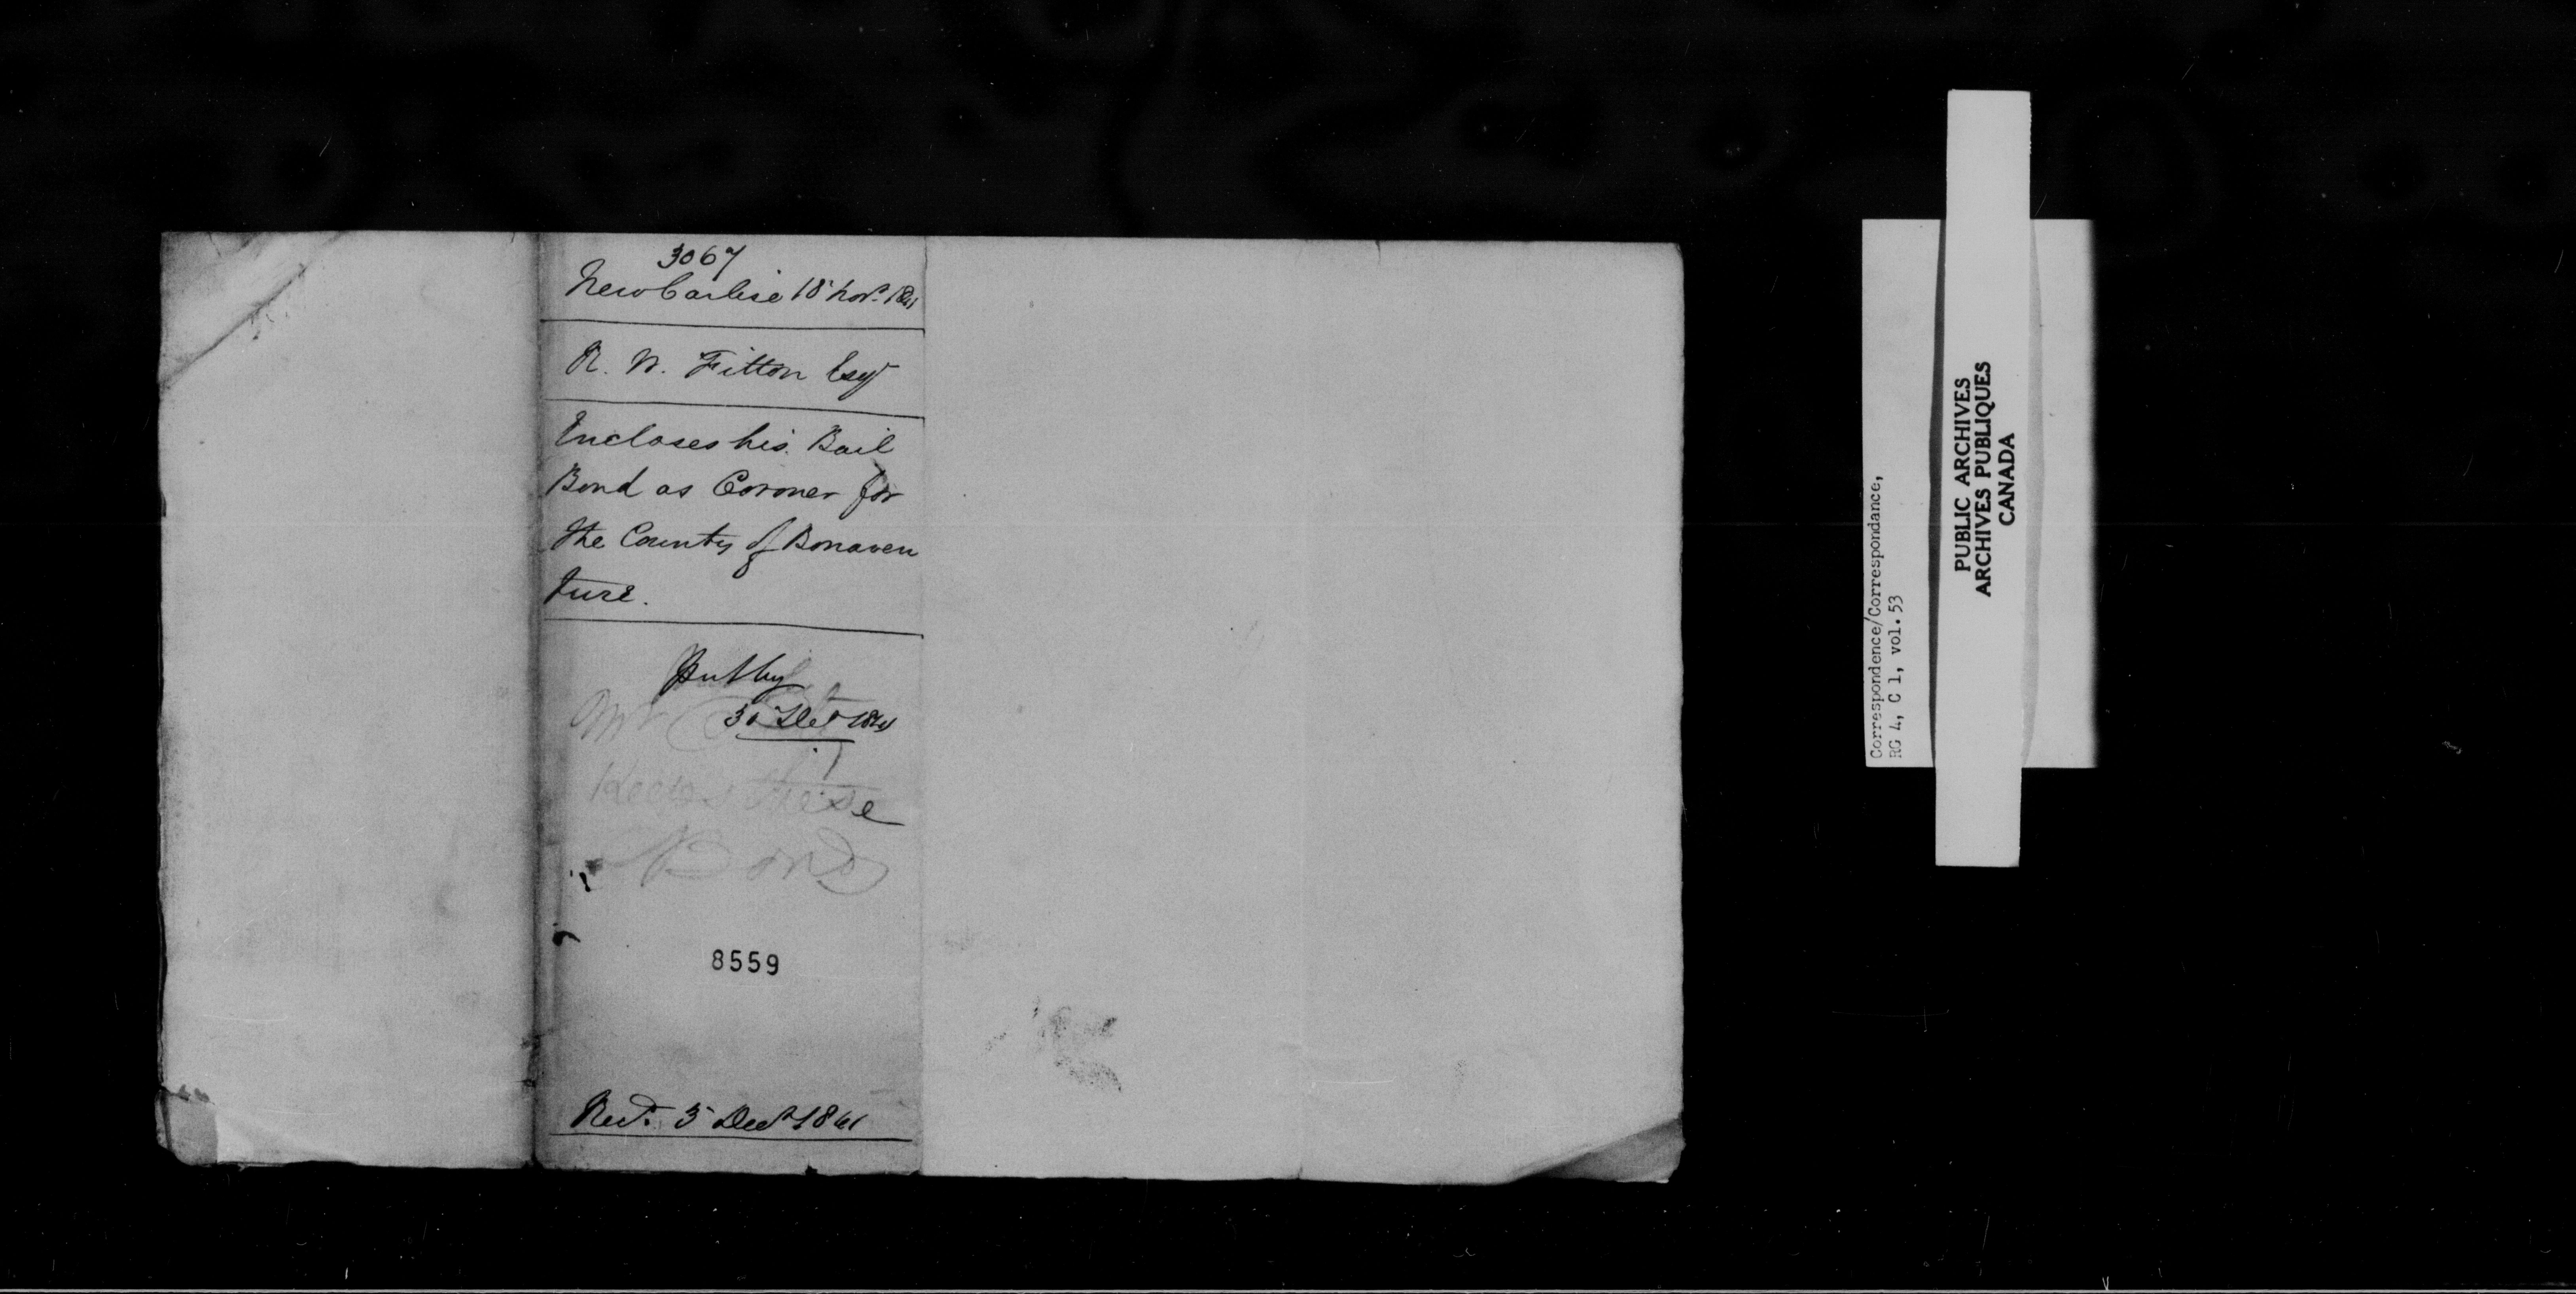 3067
New Carlise 18 Novr. 1841
R. W. Fitton Esqr
Encloses his Bail
Bond as Coroner for
the County of Bonaven
ture.
30 Dec 1841
Keep these
Bonds
8559
Recd. 3 Decr 1841
Correspondence/Correspondance,
RG 4, C 1, vol. 53
PUBLIC ARCHIVES
ARCHIVES PUBLIQUES
CANADA